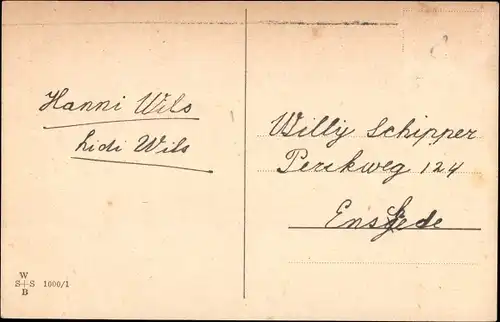 Hanni Wils
Lidi Wils
Willy Schipper
Perikweg 124
Enschede
W
S+S 1000/1
B